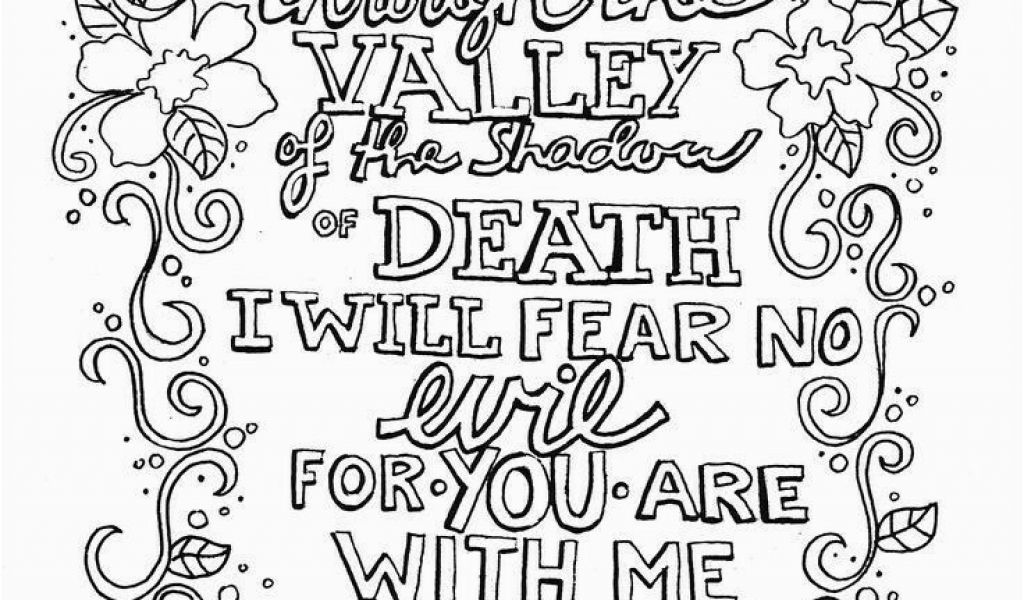 through the
VALLEY
of the Shadow
OF DEATH
I WILL FEAR NO
evil
FOR • YOU • ARE
WITH ME